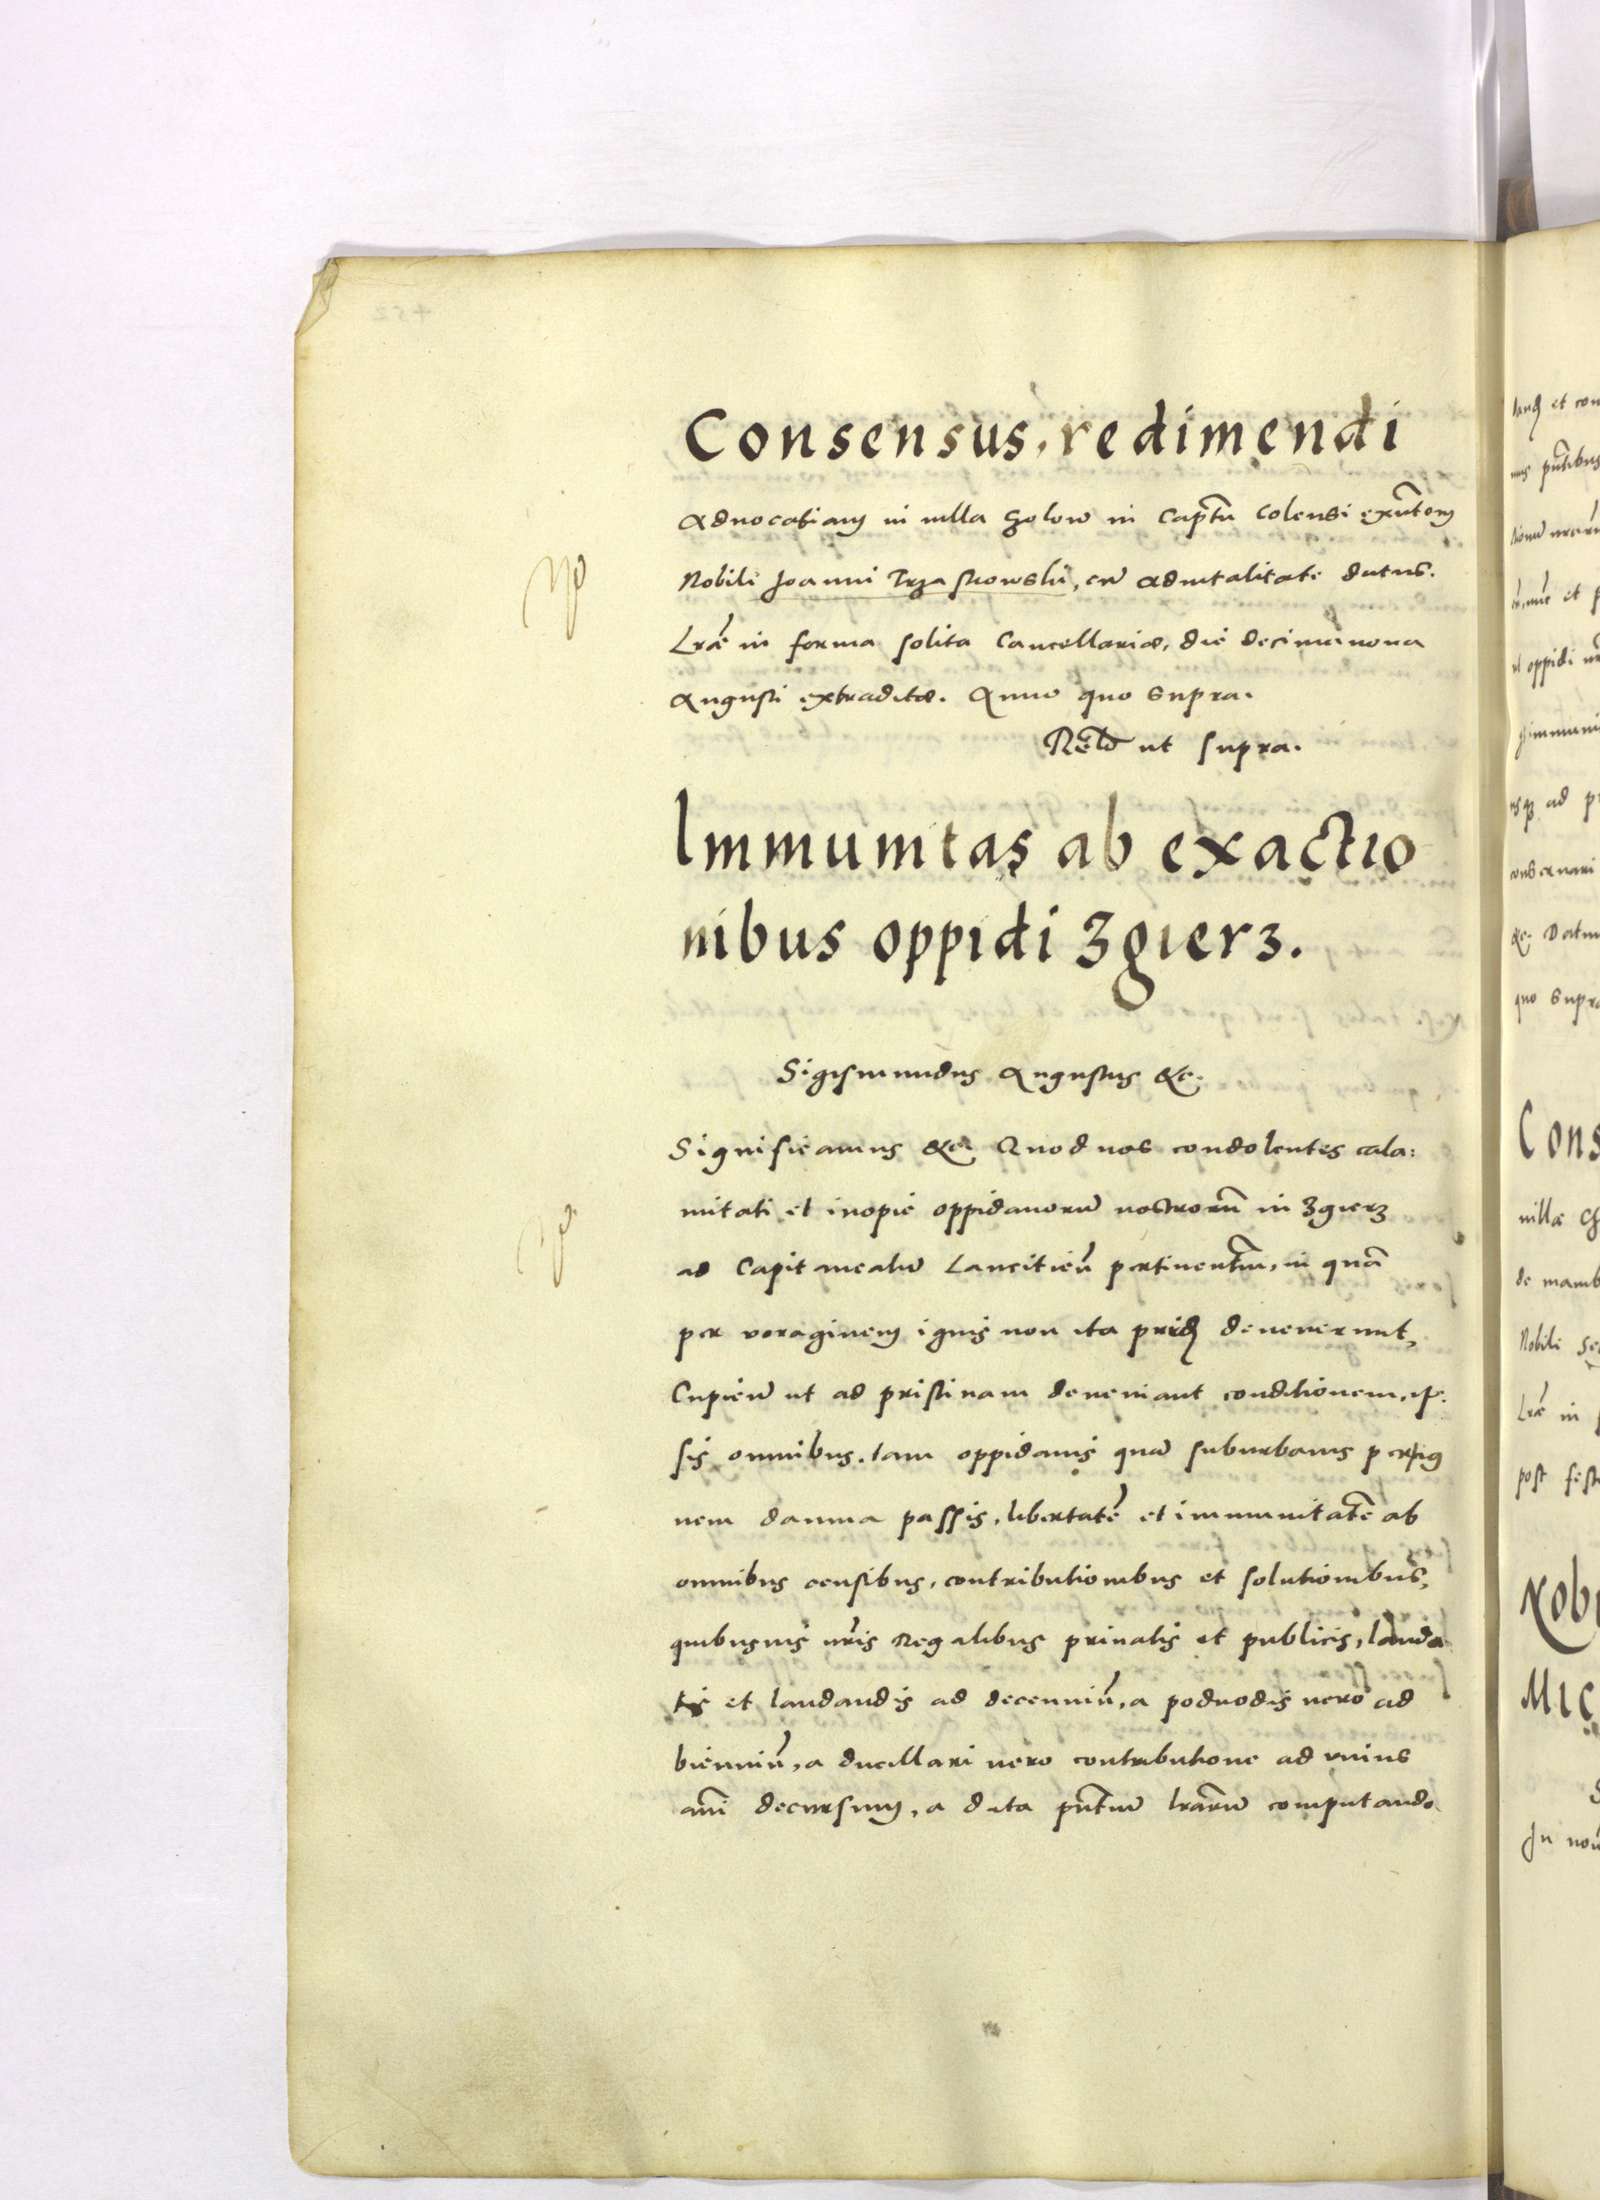 Consensus, redimendi
Aduocatiam in uilla Golow in Capt̃u Colensi exñtem
Nobili Joanni Trzaskowski, cũ aduitalitate datus.
Lrãe in forma solita Cancellariæ, die decimanona
Augusti extraditæ. Anno quo supra.
Relõ ut supra.
Immunitas ab exactio
nibus oppidi Zgierz.
Sigismundus Augustus &c.
Significamus &c. Quod nos condolentes cala:
mitati et inopie oppidanorũ nostrorũ in Zgierz
ad Capitaneatũ Lancitieñ pertinentiũ, in quã
per voraginem ignis non ita pridẽ deuenerunt,
Cupieñ ut ad pristinam deueniant conditionem, ip:
sis omnibus, tam oppidanis quã suburbanis per ig
nem damna passis, libertatẽ et immunitatẽ ab
omnibus censibus, contributionibus et solutionibus,
quibusuis nris̃ Regalibus priuatis et publicis, lauda
tis et laudandis ad decenniũ, a poduodis uero ad
bienniũ, a ducillari uero contributione ad unius
anñi decursum, a data pñtium lrãrũ computando
lrãe in
post fest
quo supra